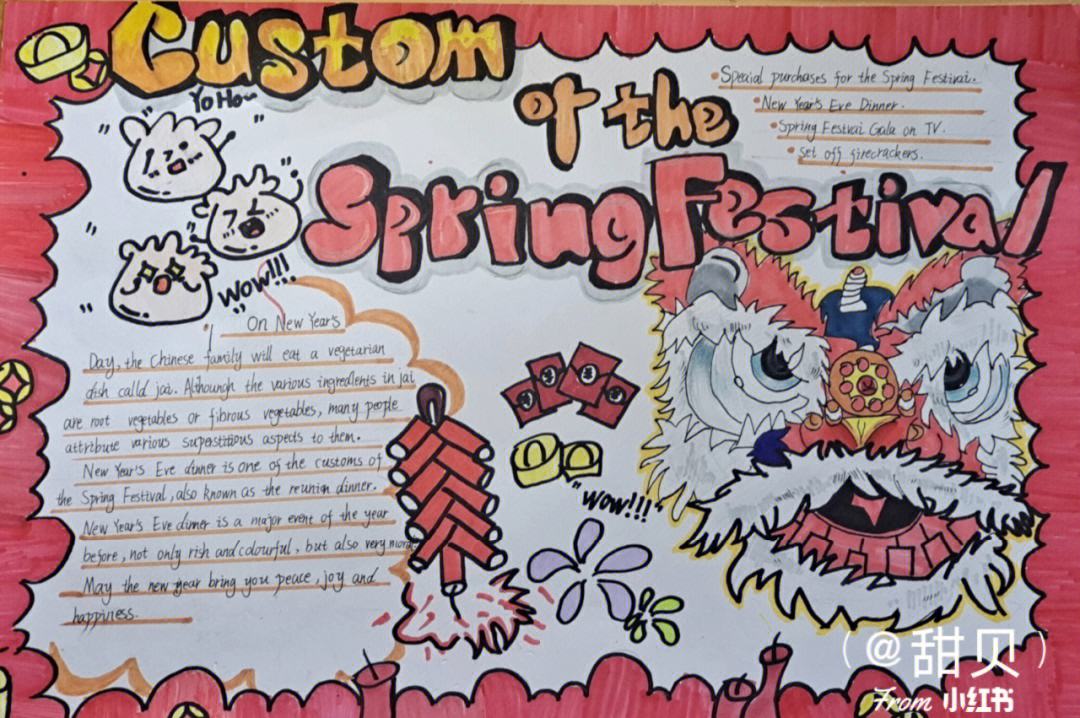 Custom
of the
Spring Festival
Special purchases for the Spring Festivai.
New Year's Eve Dinner.
Spring Festvai Gala on TV.
Set off firecrackers.
YoHo~
WOW!!!
On New Year's
Day, the Chinese family will eat a vegetarian
dish calld jai. Althoungh the various ingredients in jai
are root vegetables or fibrous vegetables, many people
attribute various superstitious aspects to them.
New Year's Eve dinner is one of the customs of
the Spring Festival, also known as the reunion dinner.
New Year's Eve dinner is a major event of the year
before, not only rish and colourful, but also very more
May the new year bring you peace, joy and
happiness.
WOW!!!
(@甜贝)
From 小红书